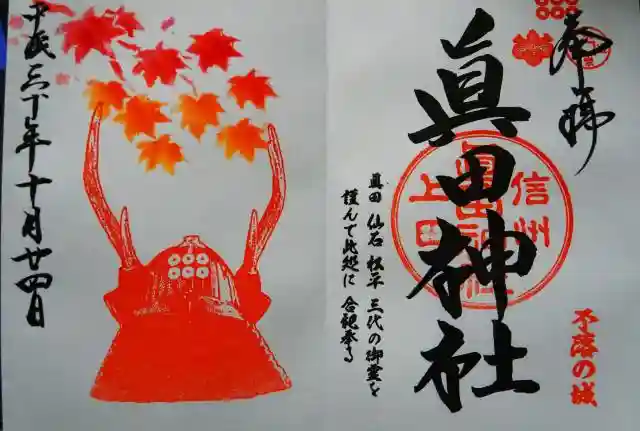 奉拝
眞田神社
信州
上田
眞田神社
不落の城
眞田 仙石 松平 三代の御霊を
謹んで此処に 合祀奉る
平成三十年十月廿四日